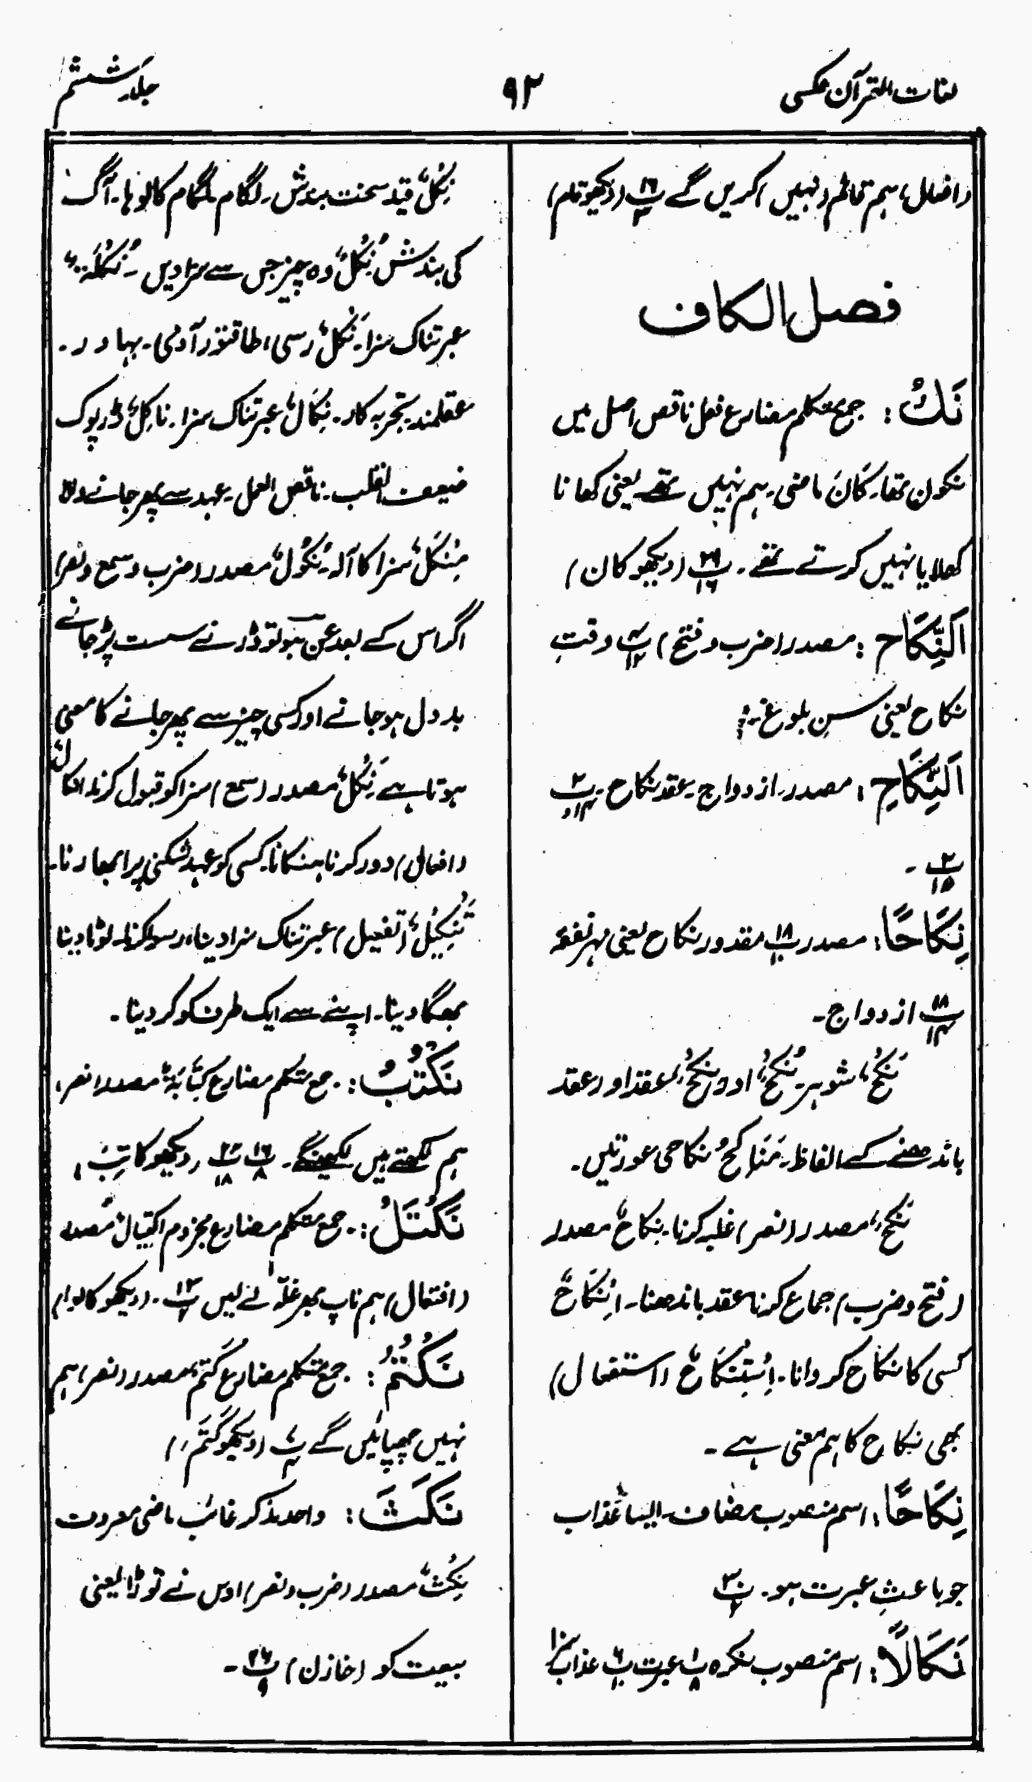 لغات القرآن عکسی
۹۲
جلد ششم
(افعال) ہم قائم (نہیں) کریں گے پ۱۶/۳ (دیکھو قام)
فصل الکاف
نَكُ: جمع متکلم مضارع فعل ناقص اصل میں
نکون تھا۔ کَانَ ماضی۔ ہم نہیں تھے یعنی کھانا
کھلایا نہیں کرتے تھے۔ پ۲۹/۱۶ (دیکھو کان)
اَلنِّكَاحِ: مصدر (ضرب و فتح) پ۴/۱۲ وقتِ
نکاح یعنی سنِ بلوغ۔
اَلنِّكَاحِ: مصدر۔ ازدواج۔ عقد نکاح۔ پ۲/۱۴
پ۲/۱۵ ۔
نِكَاحًا: مصدر پ۱۸/۱۰ مقدور نکاح یعنی مہر نفقہ
پ۱۸/۱۴ ازدواج۔
نَکْحٌ، شوہر۔ نُکْحٌ، اور نِکْحٌ، عقد اور عقد
باندھنے کے الفاظ۔ مَنَاکِحُ نکاحی عورتیں۔
نَکْحٌ، مصدر (نصر) غلبہ کرنا۔ نِکَاحٌ مصدر
(فتح و ضرب) جماع کرنا عقد باندھنا۔ اِنْکَاحٌ
کسی کا نکاح کروانا۔ اِسْتِنْکَاحٌ (استفعال)
بھی نکاح کا ہم معنی ہے۔
نِكَاحًا: اسم منصوب مضاف۔ ایسا عذاب
جو باعثِ عبرت ہو۔ پ۳۰/۲
نَكَالًا: اسم منصوب نکرہ پ۱/۸ عبرت پ۶/۱۰ عذاب سزا
نِکْلٌ قید سخت بندش۔ لگام لگام کا لوہا۔ آگ
کی بندش نُکْلٌ وہ چیز جس سے سزا دیں۔ نُکْلَۃٌ
عبرتناک سزا۔ نَکَلٌ رسی، طاقتور آدمی۔ بہادر۔
عقلمند تجربہ کار۔ نَکَالٌ عبرتناک سزا۔ نَاکِلٌ ڈرپوک
ضعیف القلب۔ ناقص العمل۔ عہد سے پھر جانے والا
مِنْکَلٌ سزا کا آلہ۔ نُکُوْلٌ مصدر (ضرب و سمع و نصر)
اگر اس کے بعد عن ہو تو ڈرنے سست پڑ جانے
بد دل ہو جانے اور کسی چیز سے پھر جانے کا معنی
ہوتا ہے نَکْلٌ مصدر (سمع) سزا کو قبول کرنا انکالٌ
(افعال) دور کرنا ہنکانا۔ کسی کو عہد شکنی پر ابھارنا۔
تَنْکِیْلٌ (تفعیل) عبرتناک سزا دینا، رسوا کرنا۔ لوٹا دینا
بھگا دینا۔ اپنے سے ایک طرف کو کر دینا۔
نَكْتُبُ: جمع متکلم مضارع کِتَابَۃٌ مصدر (نصر)
ہم لکھتے ہیں لکھینگے۔ پ۱۶/۸ پ۲۲/۱۸ (دیکھو کاتب)
نَكْتَلْ: جمع متکلم مضارع مجزوم اکتیالٌ مصدر
(افتعال) ہم ناپ بھر غلّہ لے لیں پ۱۳/۲۔ (دیکھو کالوا)
نَكْتُمُ: جمع متکلم مضارع کَتْمٌ مصدر (نصر) ہم
نہیں چھپائیں گے پ۷/۴ (دیکھو کَتَمَ)
نَكَثَ: واحد مذکر غائب ماضی معروف
نَکْثٌ مصدر (ضرب و نصر) اوس نے توڑا یعنی
بیعت کو (خازن) پ۲۶/۹ ۔